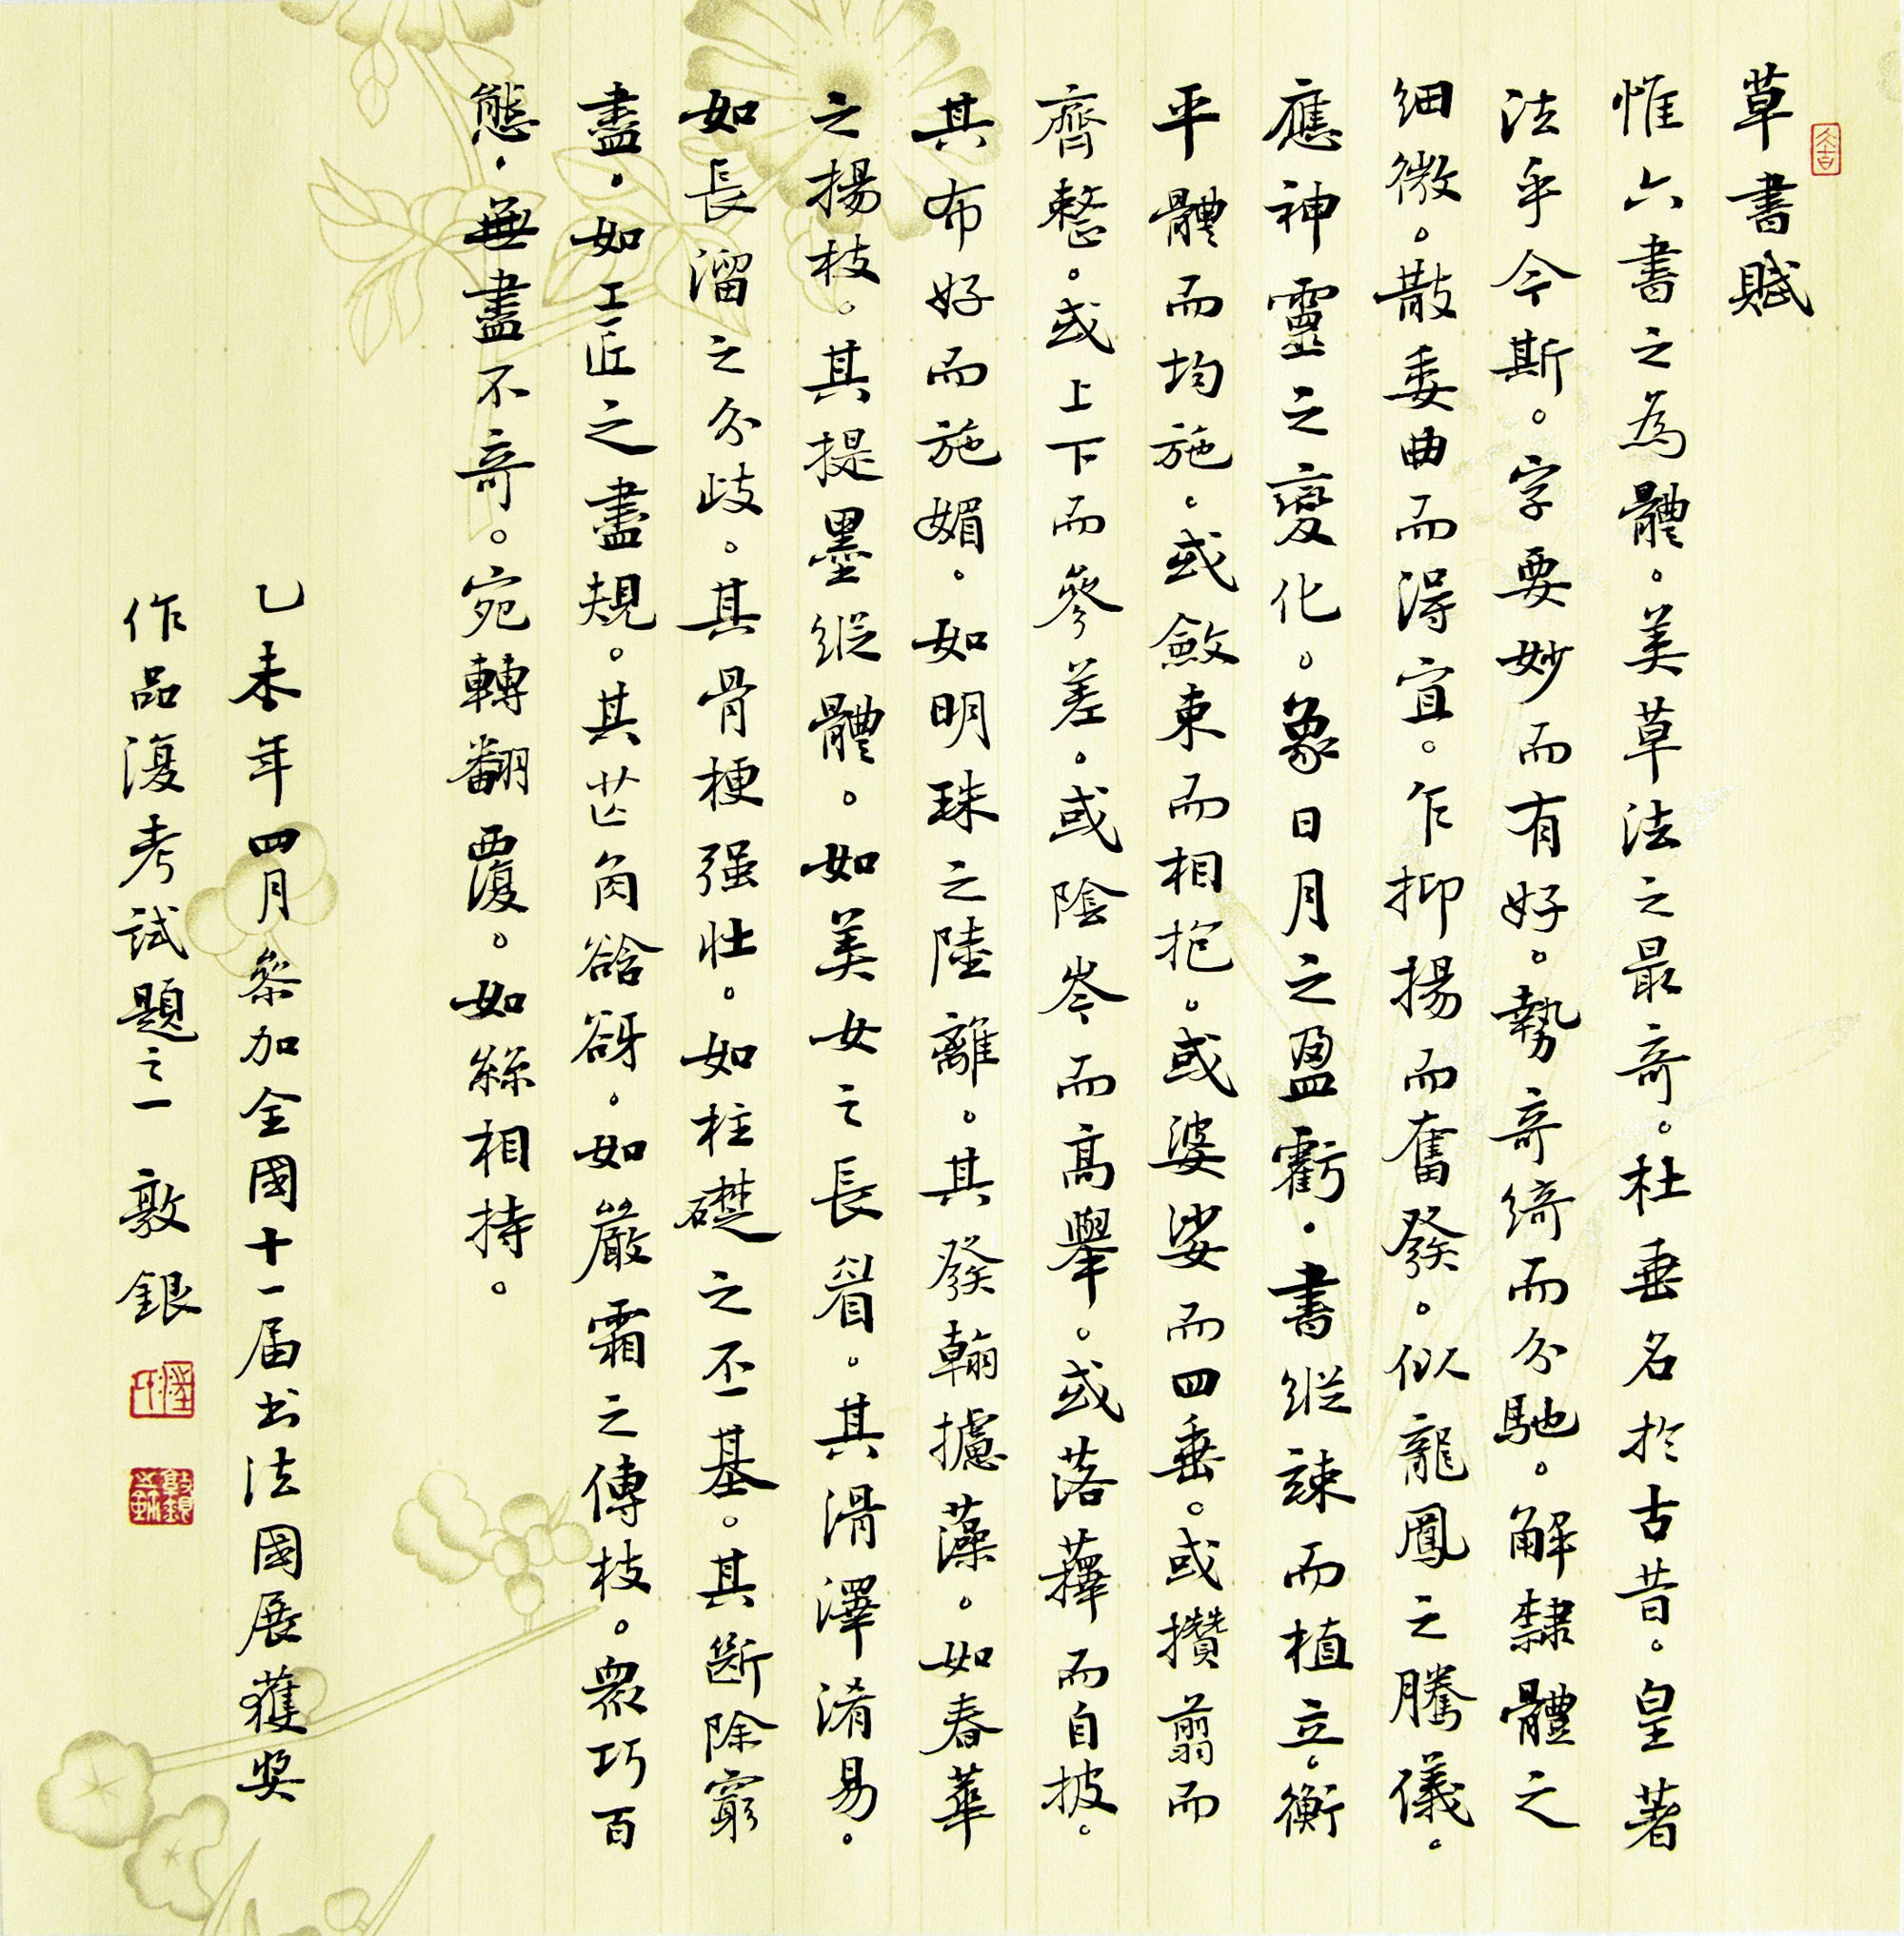 草書賦
惟六書之為體。美草法之最奇。杜垂名於古昔。皇著
法乎今斯。字要妙而有好。勢奇綺而分馳。解隸體之
細微。散委曲而得宜。乍抑揚而奮發。似龍鳳之騰儀。
應神靈之變化。象日月之盈虧。書縱竦而植立。衡
平體而均施。或斂束而相抱。或婆娑而四垂。或攢翦而
齊整。或上下而參差。或陰岑而高舉。或落蘀而自披。
其布好而施媚。如明珠之陸離。其發翰攄藻。如春華
之揚枝。其提墨縱體。如美女之長眉。其滑澤淆易。
如長溜之分歧。其骨梗强壯。如柱礎之丕基。其斷除窮
盡。如工匠之盡規。其芒角谽谺。如嚴霜之傅枝。衆巧百
態。無盡不奇。宛轉翻覆。如絲相持。
乙未年四月參加全國十一届书法國展獲奖
作品復考試題之一 敦銀